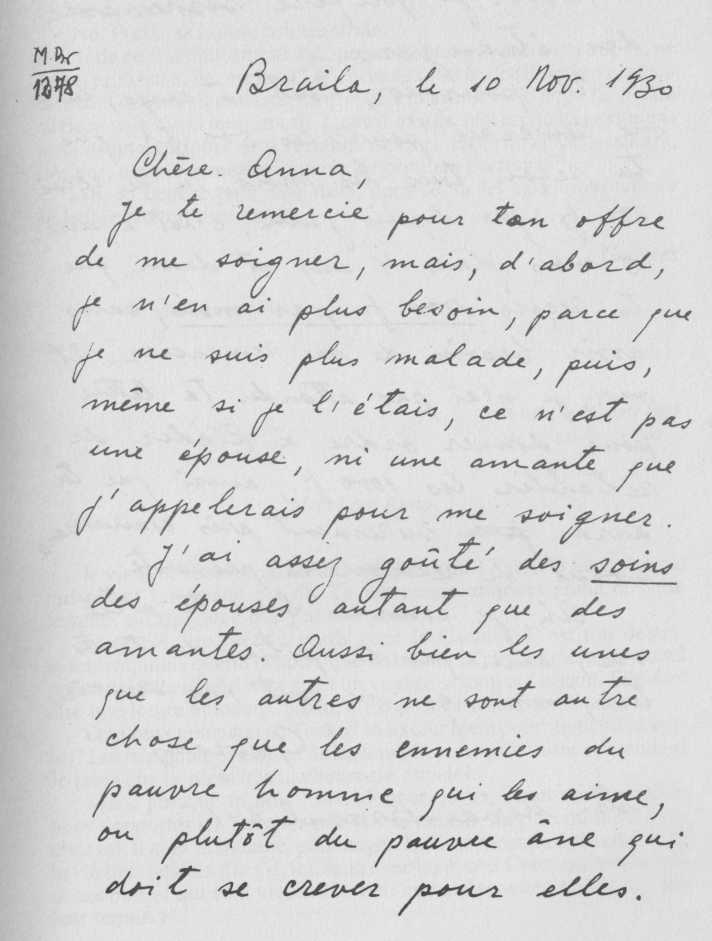 M. Br
1278
Braila, le 10 Nov. 1930
Chère. Anna,
Je te remercie pour ton offre
de me soigner, mais, d'abord,
je n'en ai plus besoin, parce que
je ne suis plus malade, puis,
même si je l'étais, ce n'est pas
une épouse, ni une amante que
j'appelerais pour me soigner.
J'ai assez goûté des soins
des épouses autant que des
amantes. Aussi bien les unes
que les autres ne sont autre
chose que les ennemies du
pauvre homme qui les aime,
ou plutôt du pauvre âne qui
doit se crever pour elles.